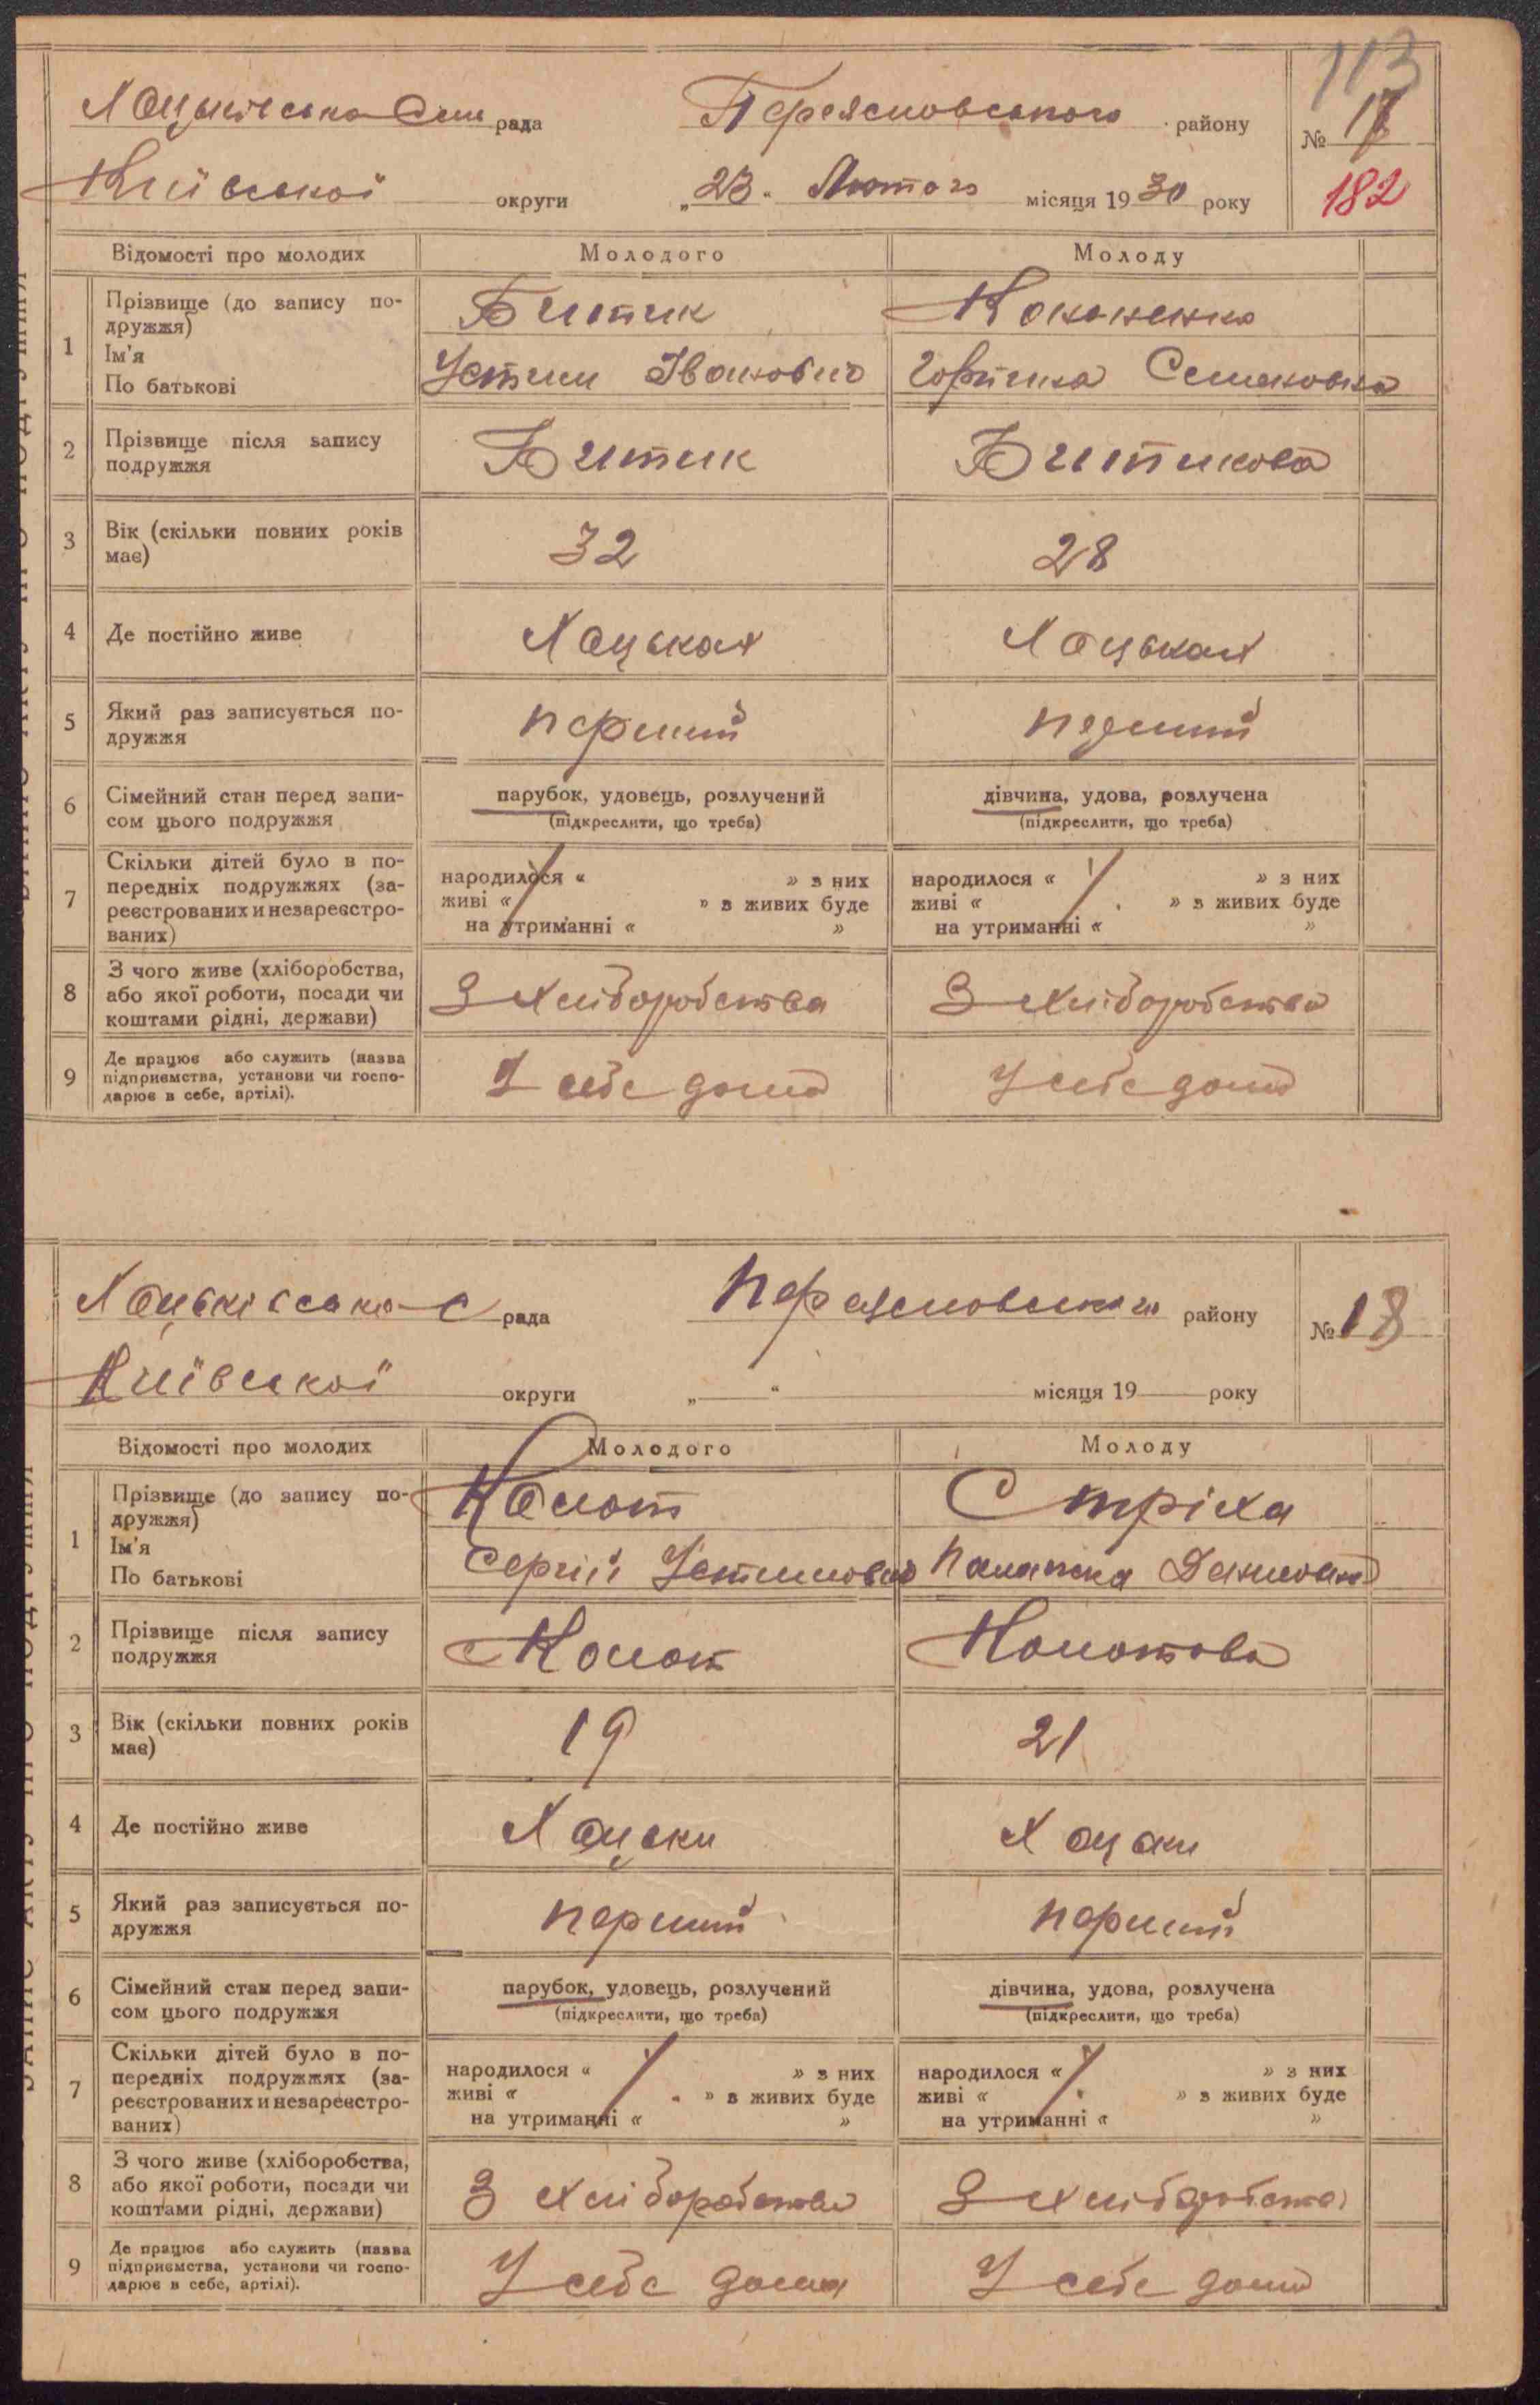 113
Хоцьківська Сіль рада Переяславського району № 17
Київської округи „23“ Лютого місяця 1930 року 182
Відомості про молодих Молодого Молоду
1 Прізвище (до запису подружжя) Битик Кононенко
Ім'я
По батькові Устин Іванович Горпина Семеновна
2 Прізвище після запису подружжя Битик Битикова
3 Вік (скільки повних років має) 32 28
4 Де постійно живе Хоцьках Хоцьках
5 Який раз записується подружжя перший перший
6 Сімейний стан перед записом цього подружжя парубок, удовець, розлучений дівчина, удова, розлучена
(підкреслити, що треба) (підкреслити, що треба)
7 Скільки дітей було в попередніх подружжях (зареєстрованих и незареєстрованих)
народилося « » з них народилося « » з них
живі « » з живих буде живі « » з живих буде
на утриманні « » на утриманні « »
8 З чого живе (хліборобства, або якої роботи, посади чи коштами рідні, держави) З хліборобства З хліборобства
9 Де працює або служить (назва підприємства, установи чи господарює в себе, артілі). У себе дома У себе дома
Хоцьківська С рада Переяславського району № 18
Київської округи „ “ місяця 19 року
Відомості про молодих Молодого Молоду
1 Прізвище (до запису подружжя) Колот Стріха
Ім'я
По батькові Сергій Устинович Палажка
2 Прізвище після запису подружжя Колот Колотова
3 Вік (скільки повних років має) 19 21
4 Де постійно живе Хоцьки Хоцьки
5 Який раз записується подружжя перший перший
6 Сімейний стан перед записом цього подружжя парубок, удовець, розлучений дівчина, удова, розлучена
(підкреслити, що треба) (підкреслити, що треба)
7 Скільки дітей було в попередніх подружжях (зареєстрованих и незареєстрованих)
народилося « » з них народилося « » з них
живі « » з живих буде живі « » з живих буде
на утриманні « » на утриманні « »
8 З чого живе (хліборобства, або якої роботи, посади чи коштами рідні, держави) З хліборобства З хліборобства
9 Де працює або служить (назва підприємства, установи чи господарює в себе, артілі). У себе дома У себе дома